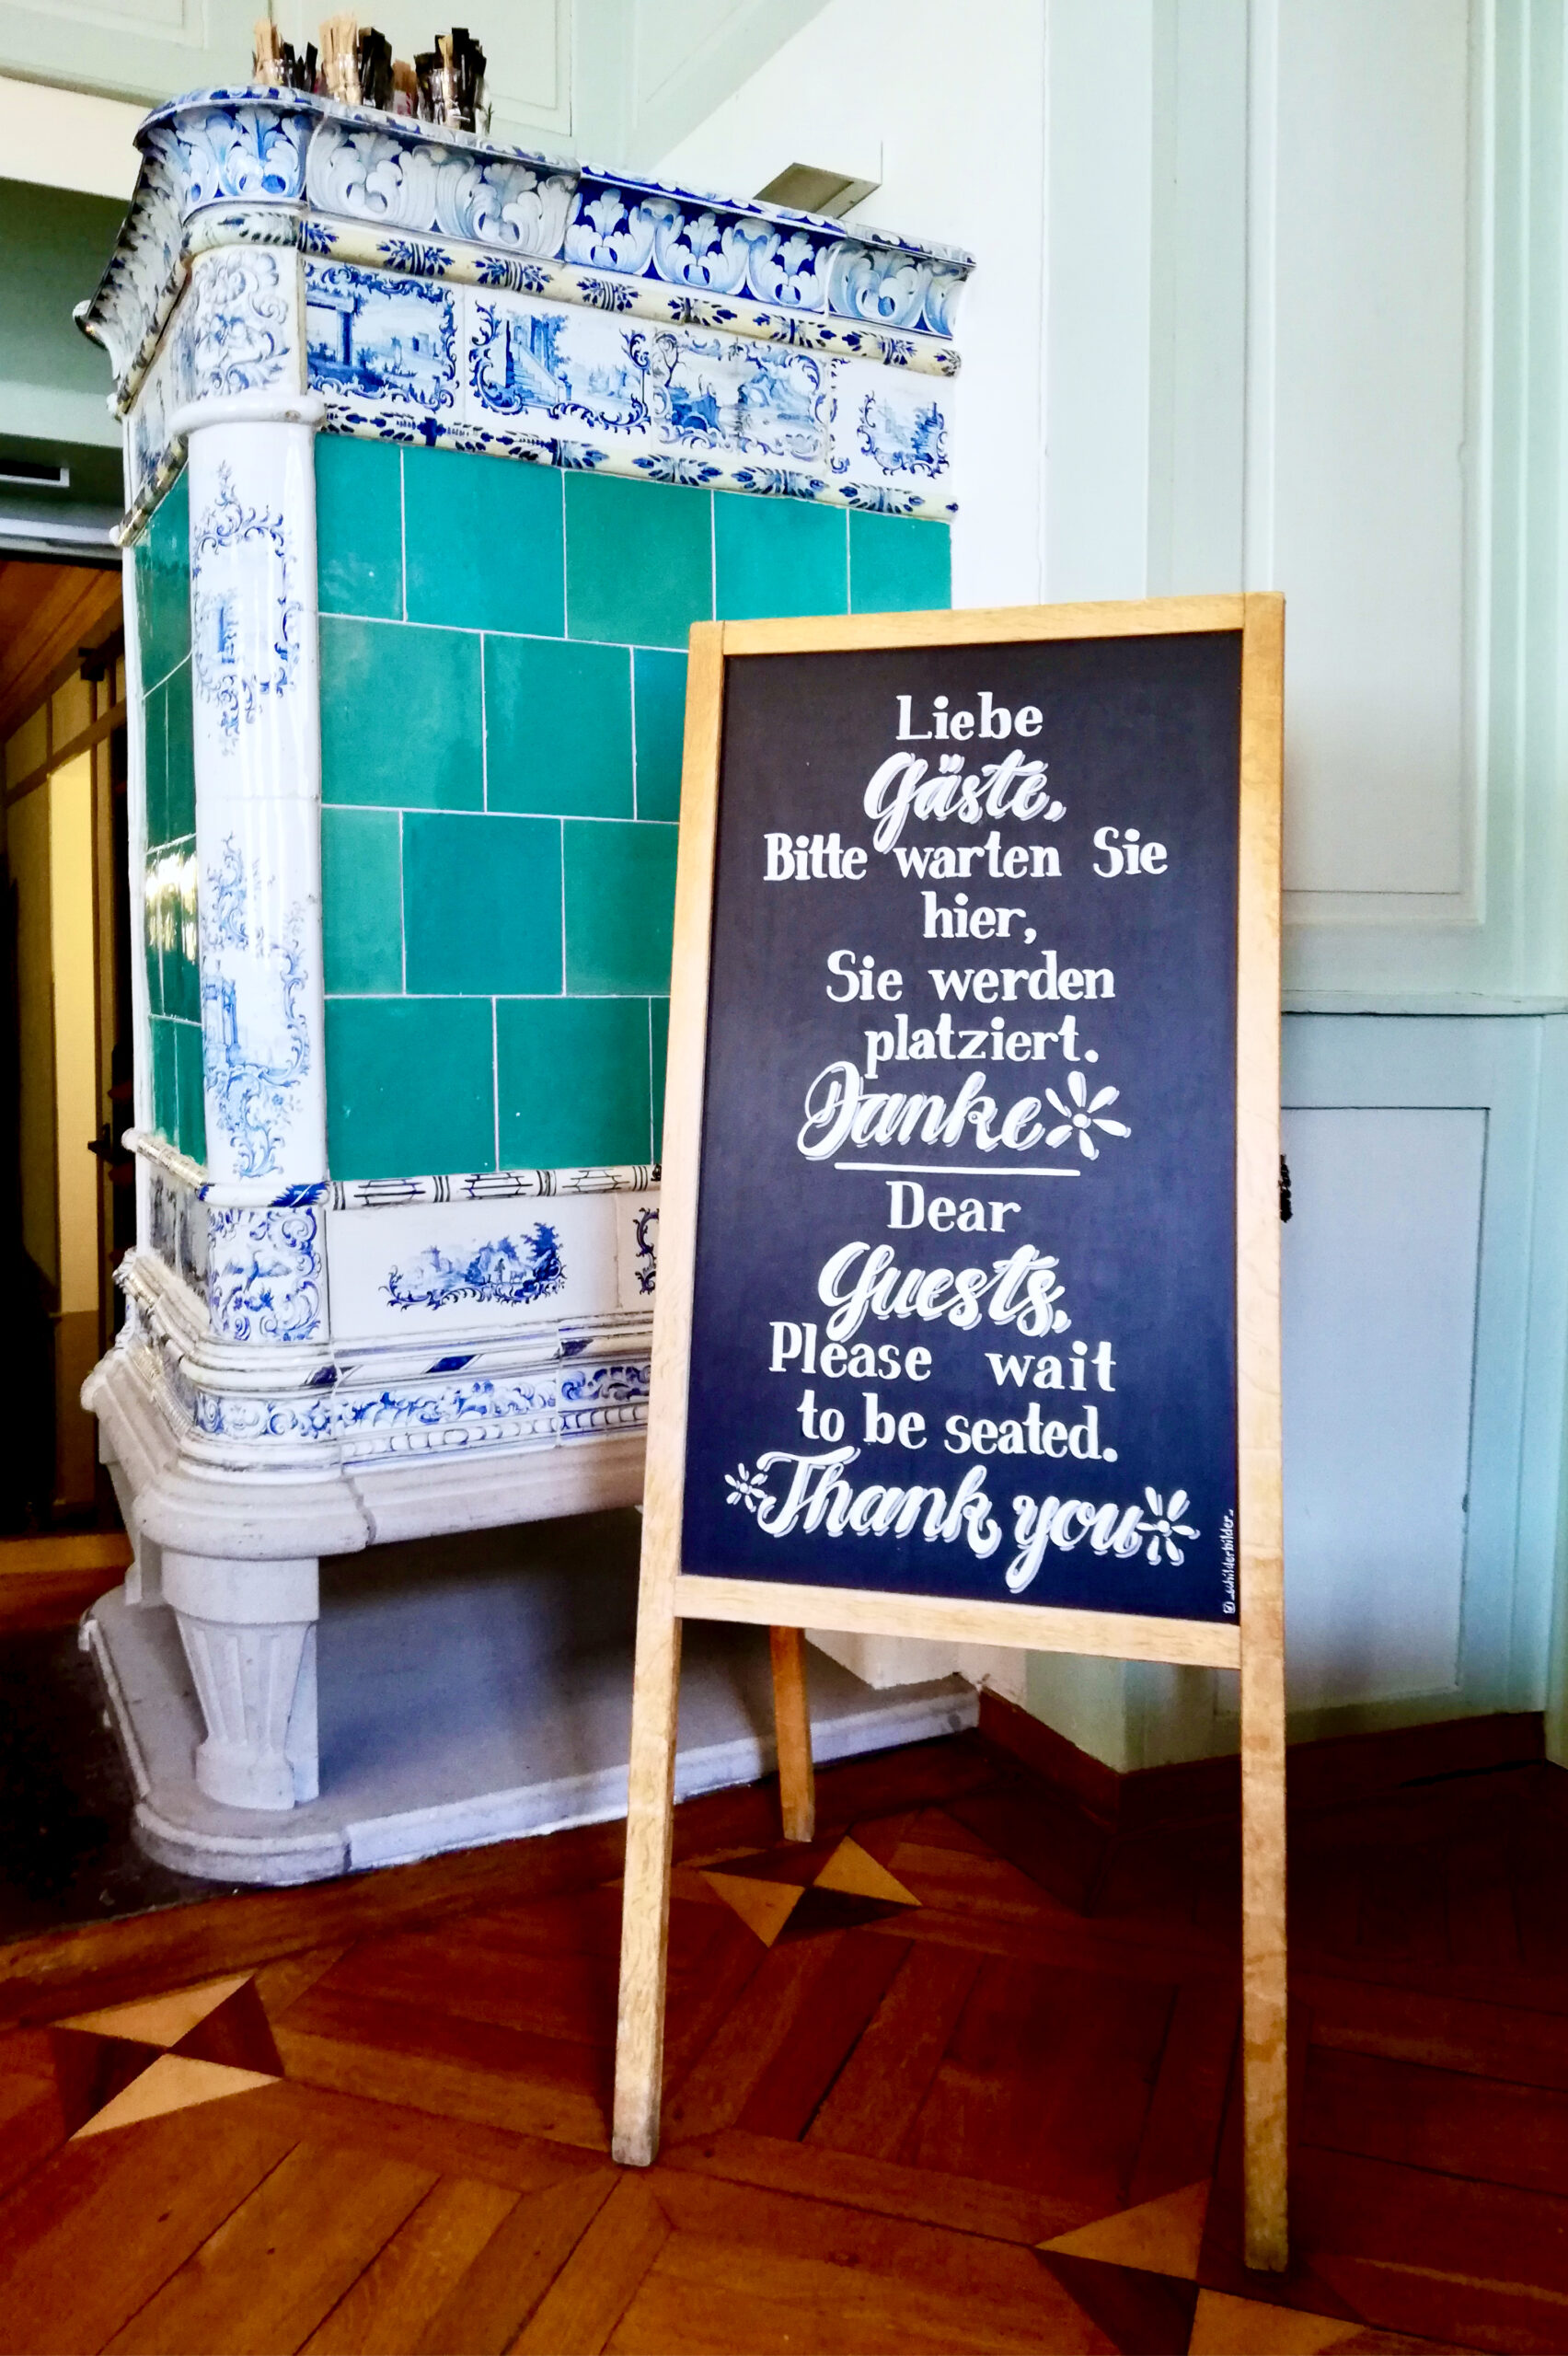 Liebe
Gäste,
Bitte warten Sie
hier,
Sie werden
platziert.
Danke
Dear
Guests,
Please wait
to be seated.
Thank you
_schilderbilder_